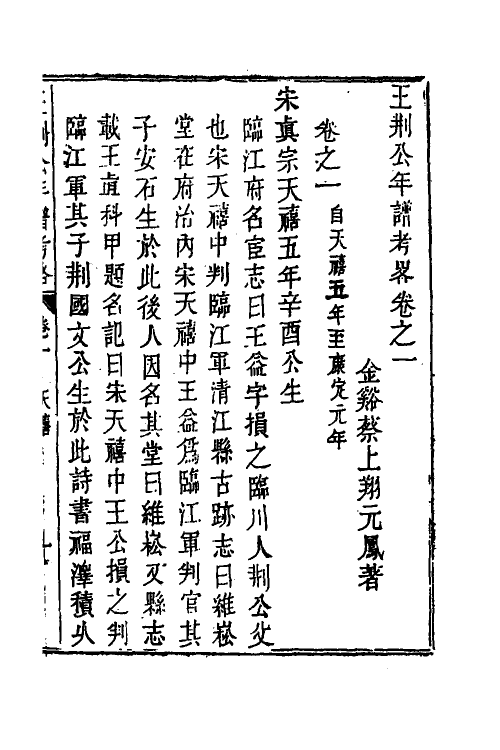 王荆公年譜考畧卷之一
金谿蔡上翔元鳳著
卷之一 自天禧五年至康定元年
宋真宗天禧五年辛酉公生
臨江府名宦志曰王益字損之臨川人荆公父
也宋天禧中判臨江軍清江縣古跡志曰維崧
堂在府治內宋天禧中王益爲臨江軍判官其
子安石生於此後人因名其堂曰維崧又縣志
載王直科甲題名記曰朱天禧中王公損之判
臨江軍其子荆國文公生於此詩書福澤積久